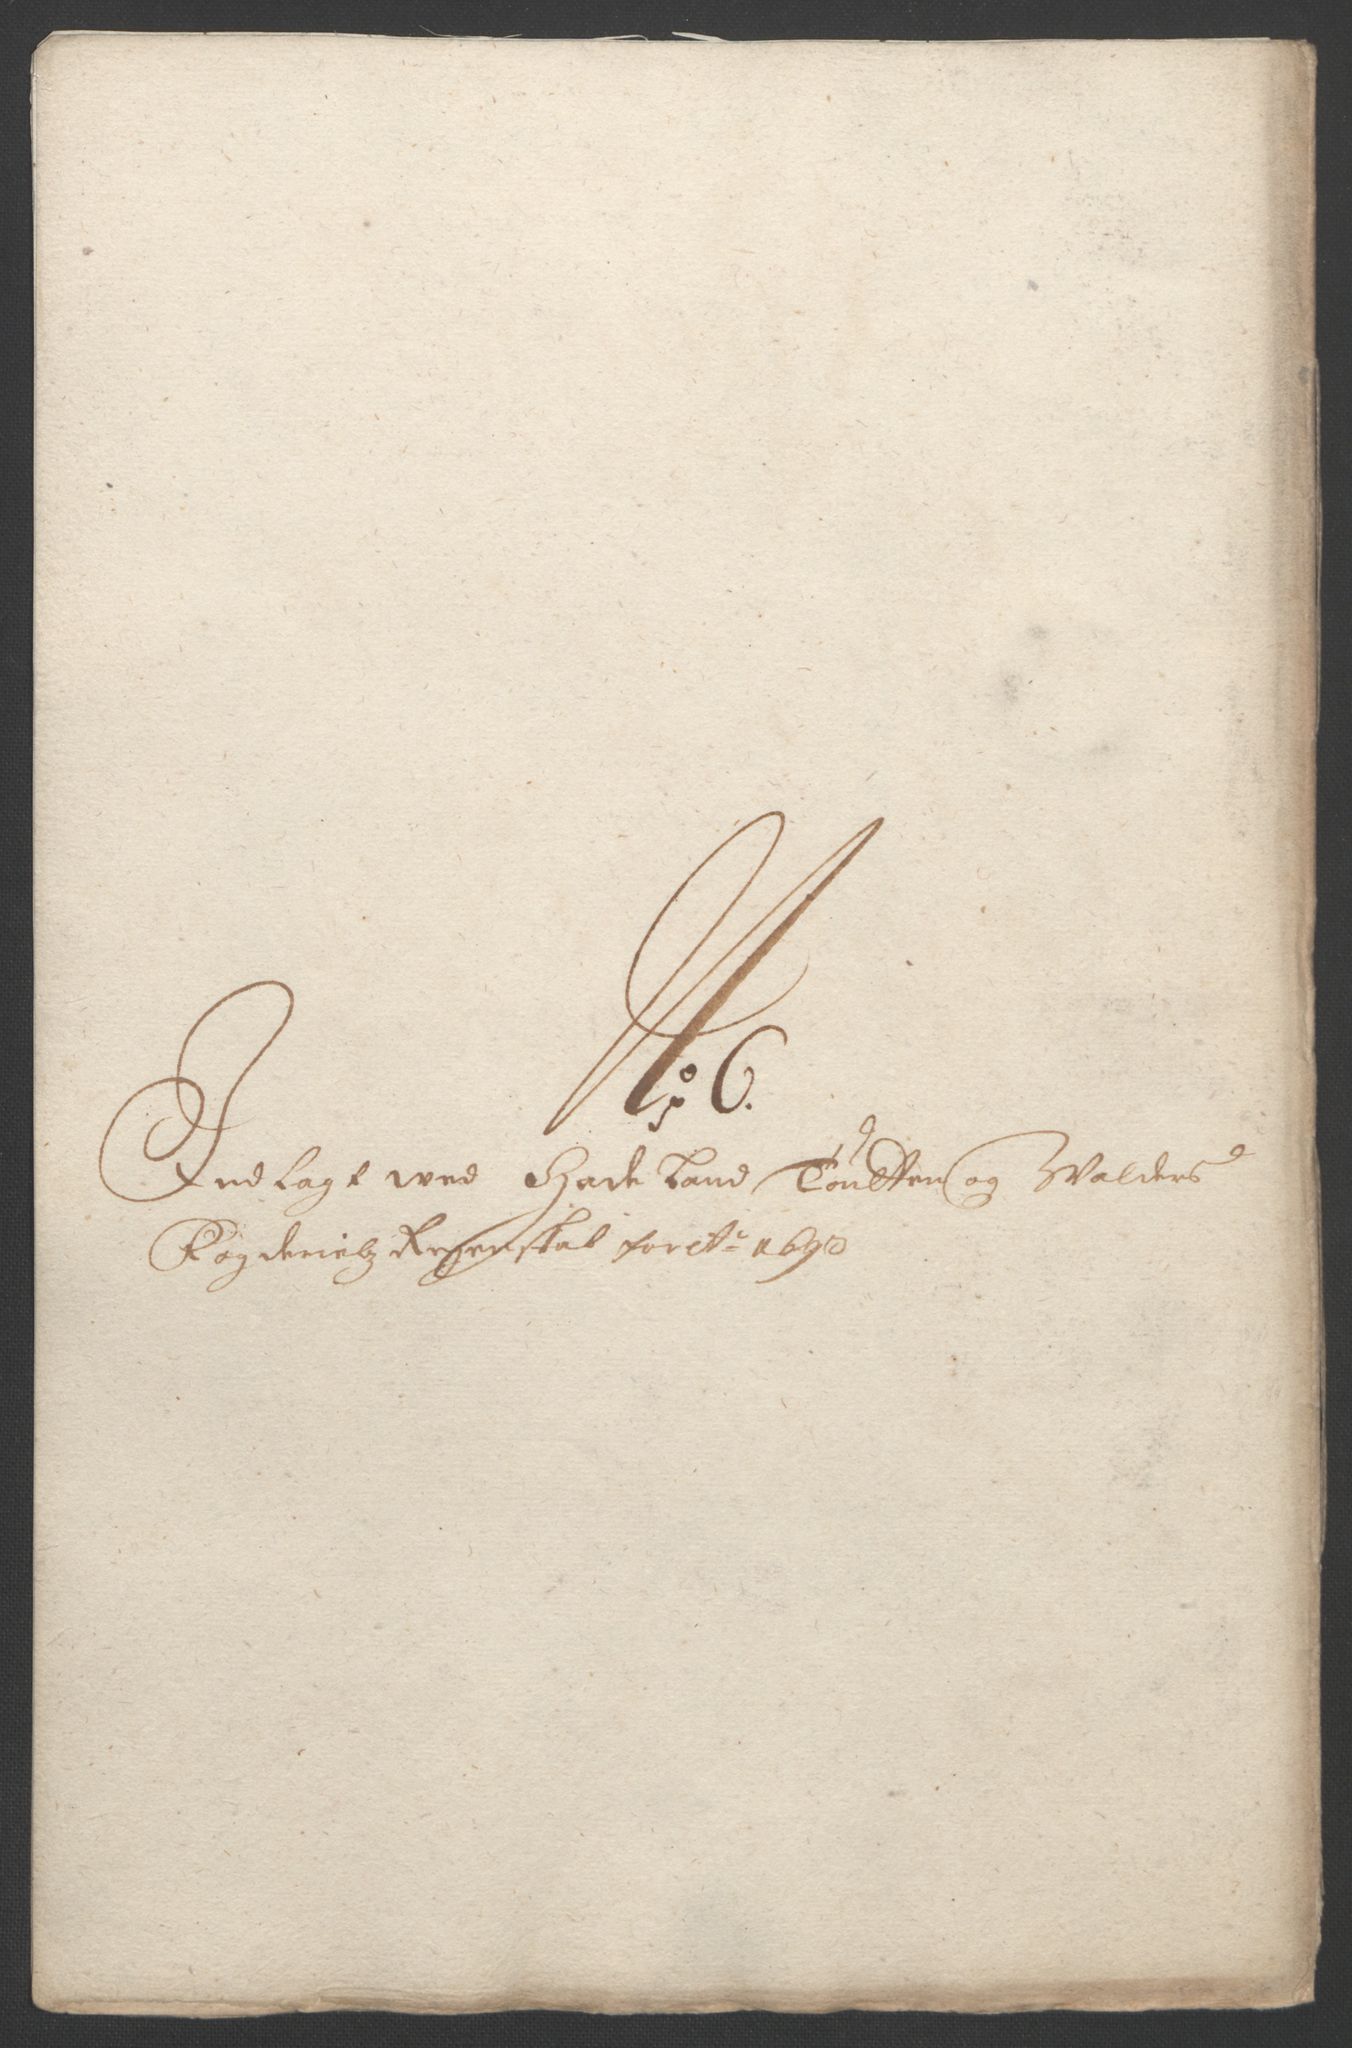 No 6.
Indlagt wed Hadeland Toudten og Walders
Fogderietz Regenskab for Ao 1690